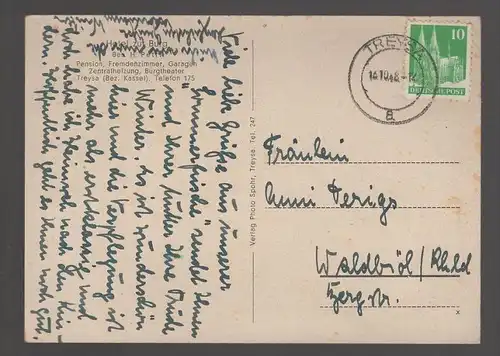 Viele liebe Grüße aus unserer
"Sommerfrische" sendet Ihnen
und Ihrer Mutter Ihre Trude
Winder. Es ist wunderschön
hier und die Verpflegung ist
mehr als erstklassig und
wohl habe ich Heimweh nach den Kin-
dern. Hoffentlich geht es Ihnen noch gut.
zur Burg
Bes.
Pension, Fremdenzimmer, Garagen
Zentralheizung, Burgtheater
Treysa (Bez. Kassel), Telefon 175
Verlag Photo Spohr, Treysa, Tel. 247
TREYSA
14.10.48
a
10
DEUTSCHE POST
Fräulein
Anni Terigs
Waldbröl/Rhld
Bergstr.
x